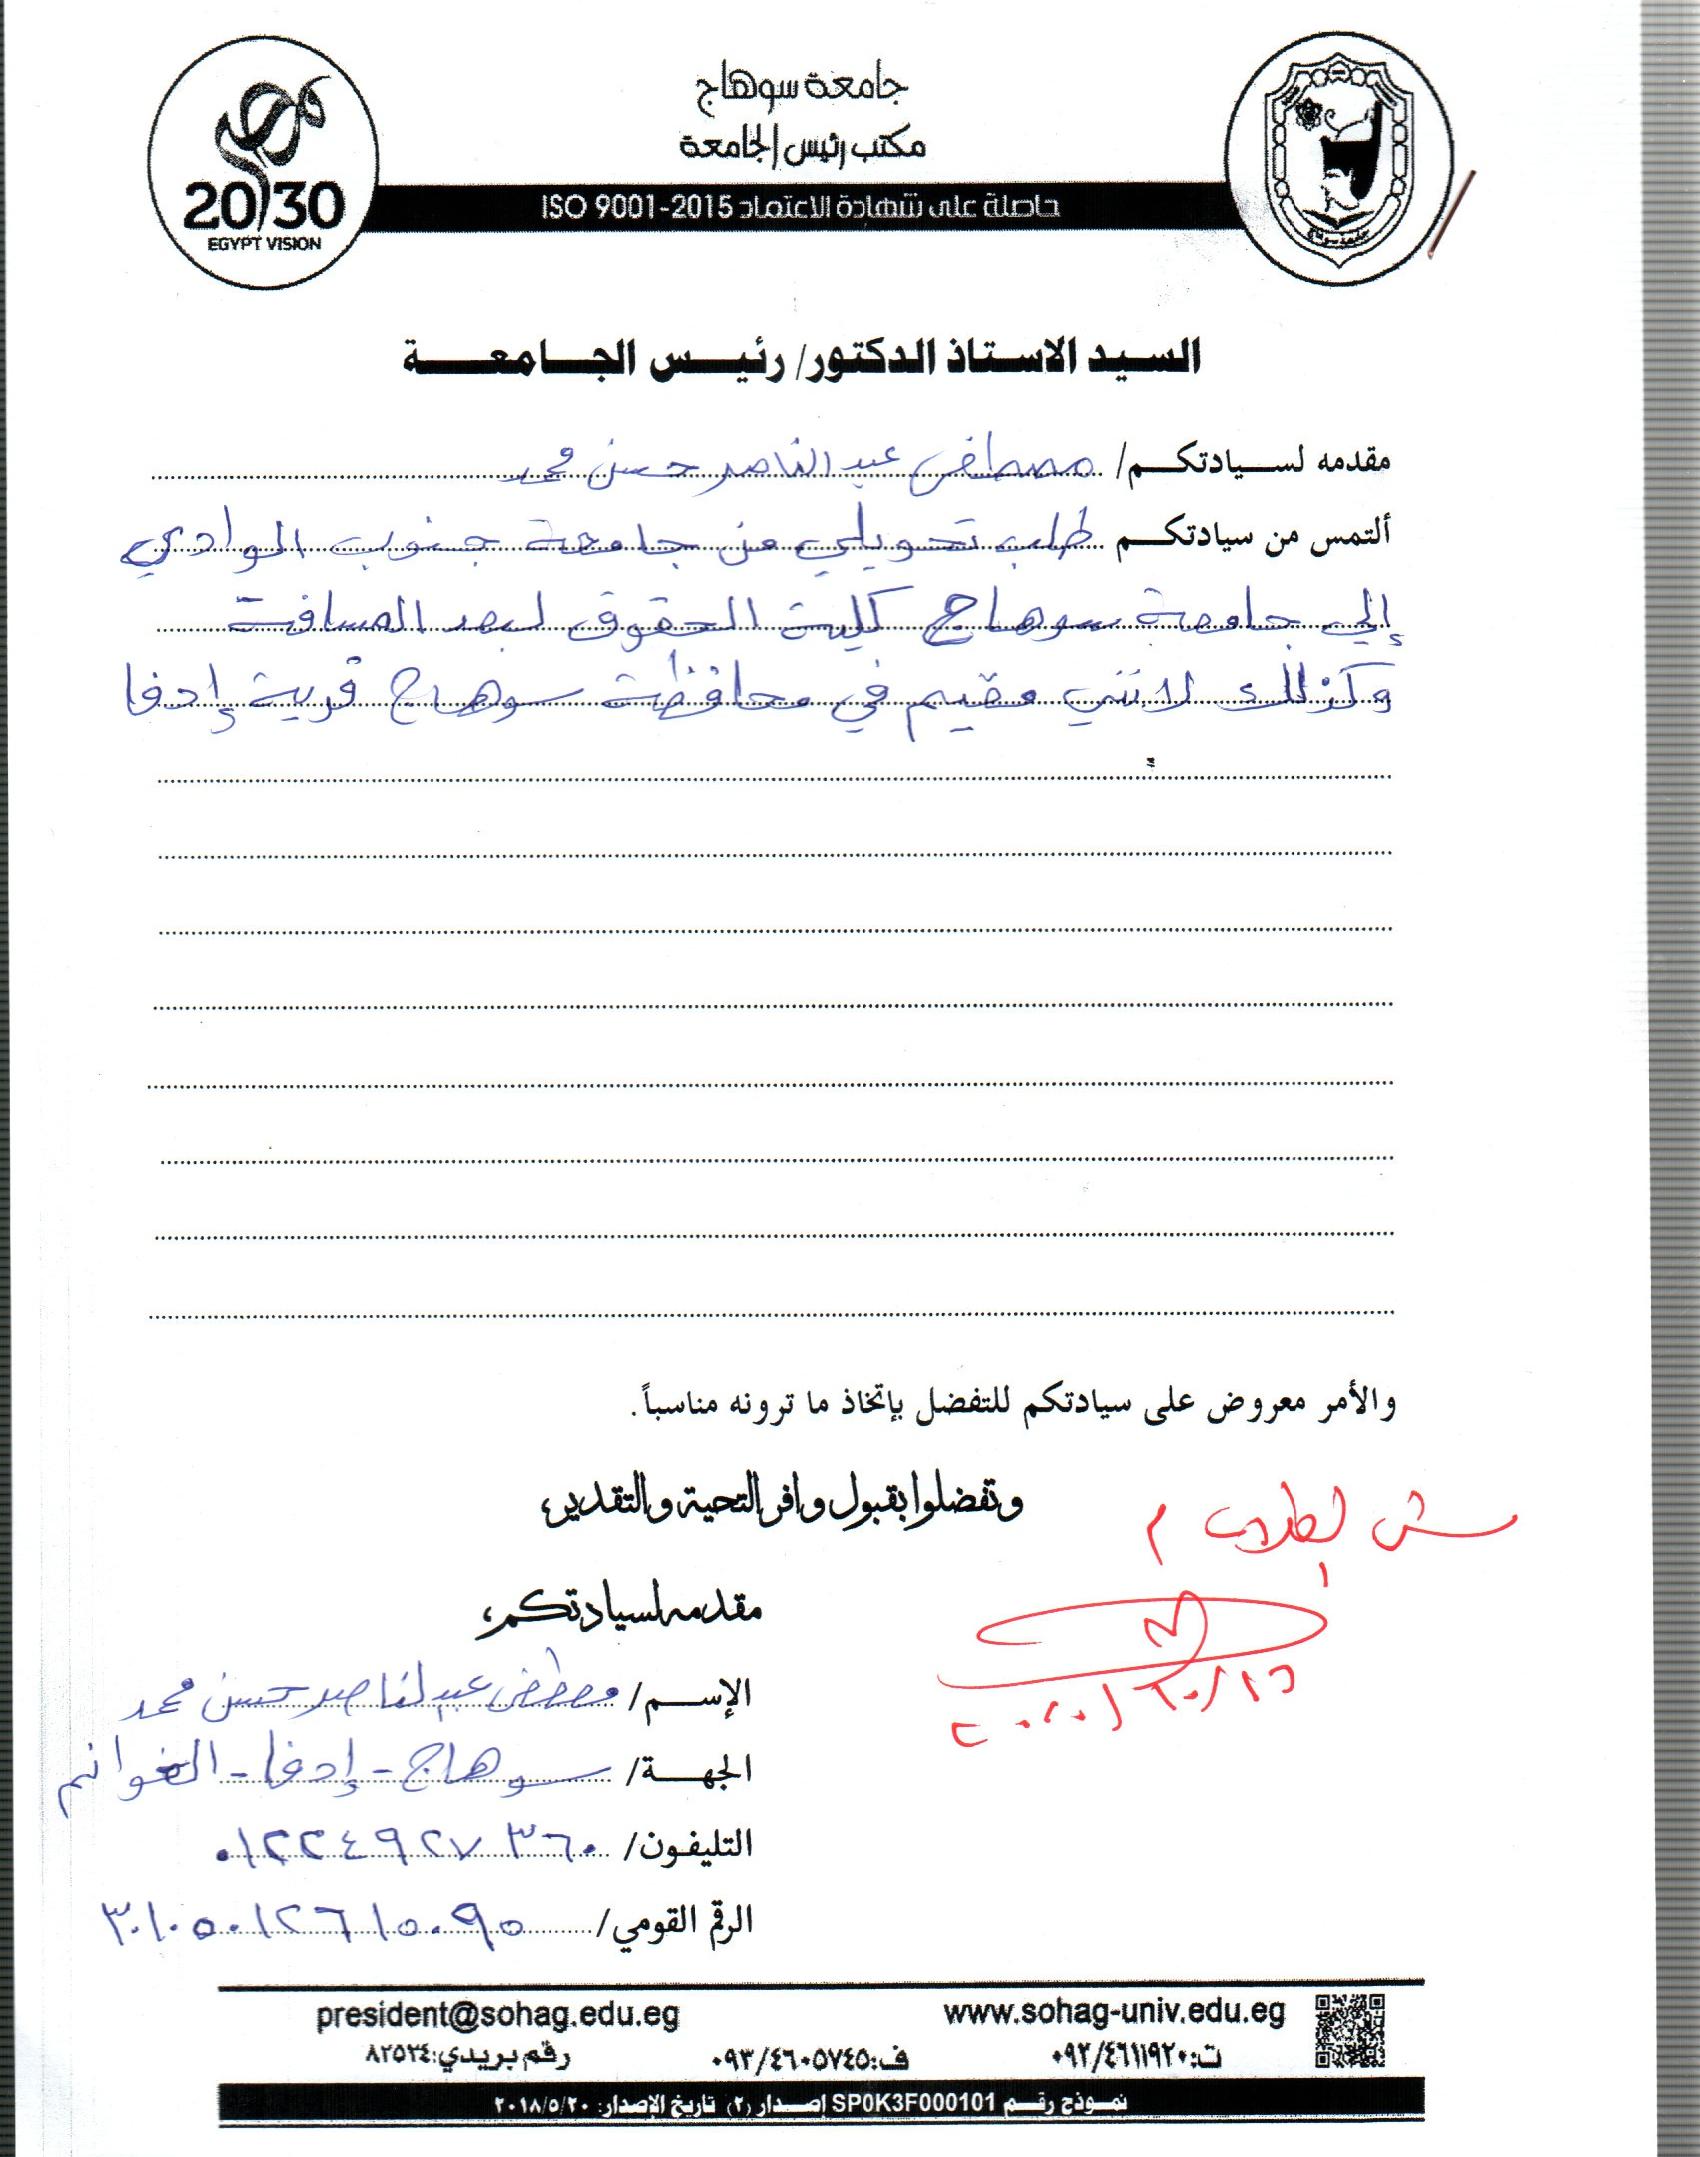 جامعة سوهاج
مكتب رئيس الجامعة
حاصلة على شهادة الاعتماد ISO 9001-2015
2030
EGYPT VISION
جامعة سوهاج
السيد الاستاذ الدكتور/ رئيس الجامعة
مقدمه لسيادتكم/ مصطفى عبد الناصر حسن محمد
ألتمس من سيادتكم طلب تحويلي من جامعة جنوب الوادي
إلي جامعة سوهاج كلية الحقوق لبعد المسافة
وكذلك لانني مقيم في محافظة سوهاج قرية إدفا
والأمر معروض على سيادتكم للتفضل بإتخاذ ما ترونه مناسباً.
وتفضلوا بقبول وافر التحية والتقدير،
مقدمه لسيادتكم،
الإسم/ مصطفى عبد الناصر حسن محمد
الجهة/ سوهاج - إدفا - الغوانم
التليفون/ ٠١٢٢٤٩٢٧٣٦٠
الرقم القومي/ ٣٠١٠٥٠١٢٦١٥٠٩٥
www.sohag-univ.edu.eg
president@sohag.edu.eg
ت:٠٩٣/٤٦١١٩٢٠ ف:٠٩٣/٤٦٠٥٧٤٥ رقم بريدي:٨٢٥٢٤
نموذج رقم SP0K3F000101 إصدار (٢) تاريخ الإصدار: ٢٠١٨/٥/٢٠